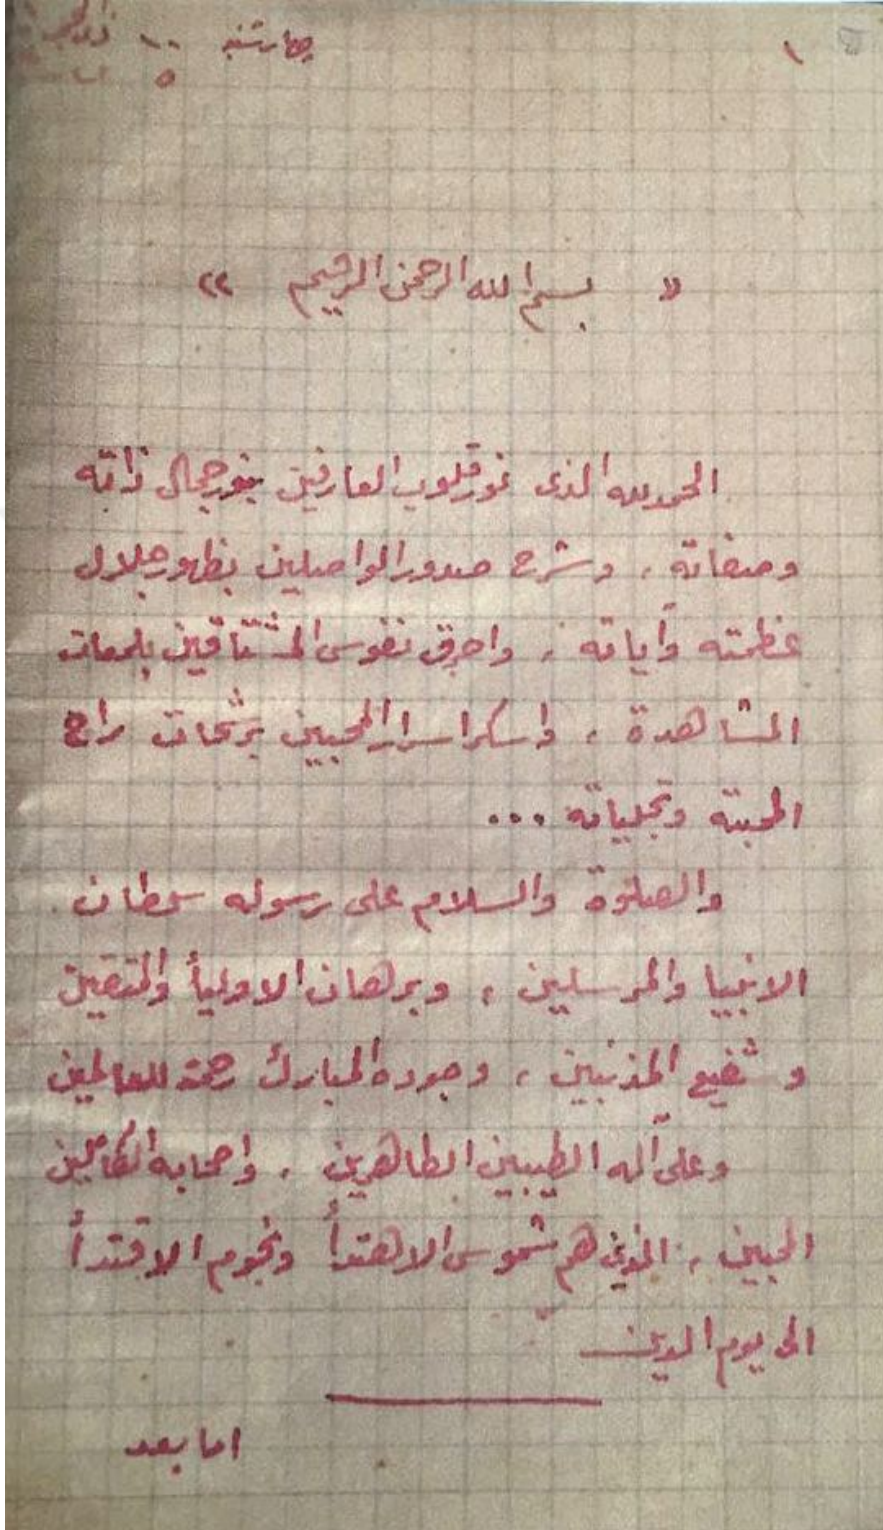 ١
چهارشنبه ١٠
« بسم الله الرحمن الرحيم »
الحمد لله الذى نور قلوب العارفين بنور جمال ذاته
وصفاته ، وشرح صدور الواصلين بظهور جلال
عظمته وآياته ، واحرق نفوس المشتاقين بلمعات
المشاهدة ، واسكر اسرار المحبين برشحات راح
المحبته وتجلياته ...
والصلوة والسلام على رسوله سلطان
الانبيا والمرسلين ، وبرهان الاوليأ والمتقين
وشفيع المذنبين ، وجوده المبارك رحمة للعالمين
وعلى آله الطيبين الطاهرين ، واصحابه الكاملين
المحبين ، الذين هم شموس الاهتدأ ونجوم الاقتدأ
الى يوم الدين
اما بعد